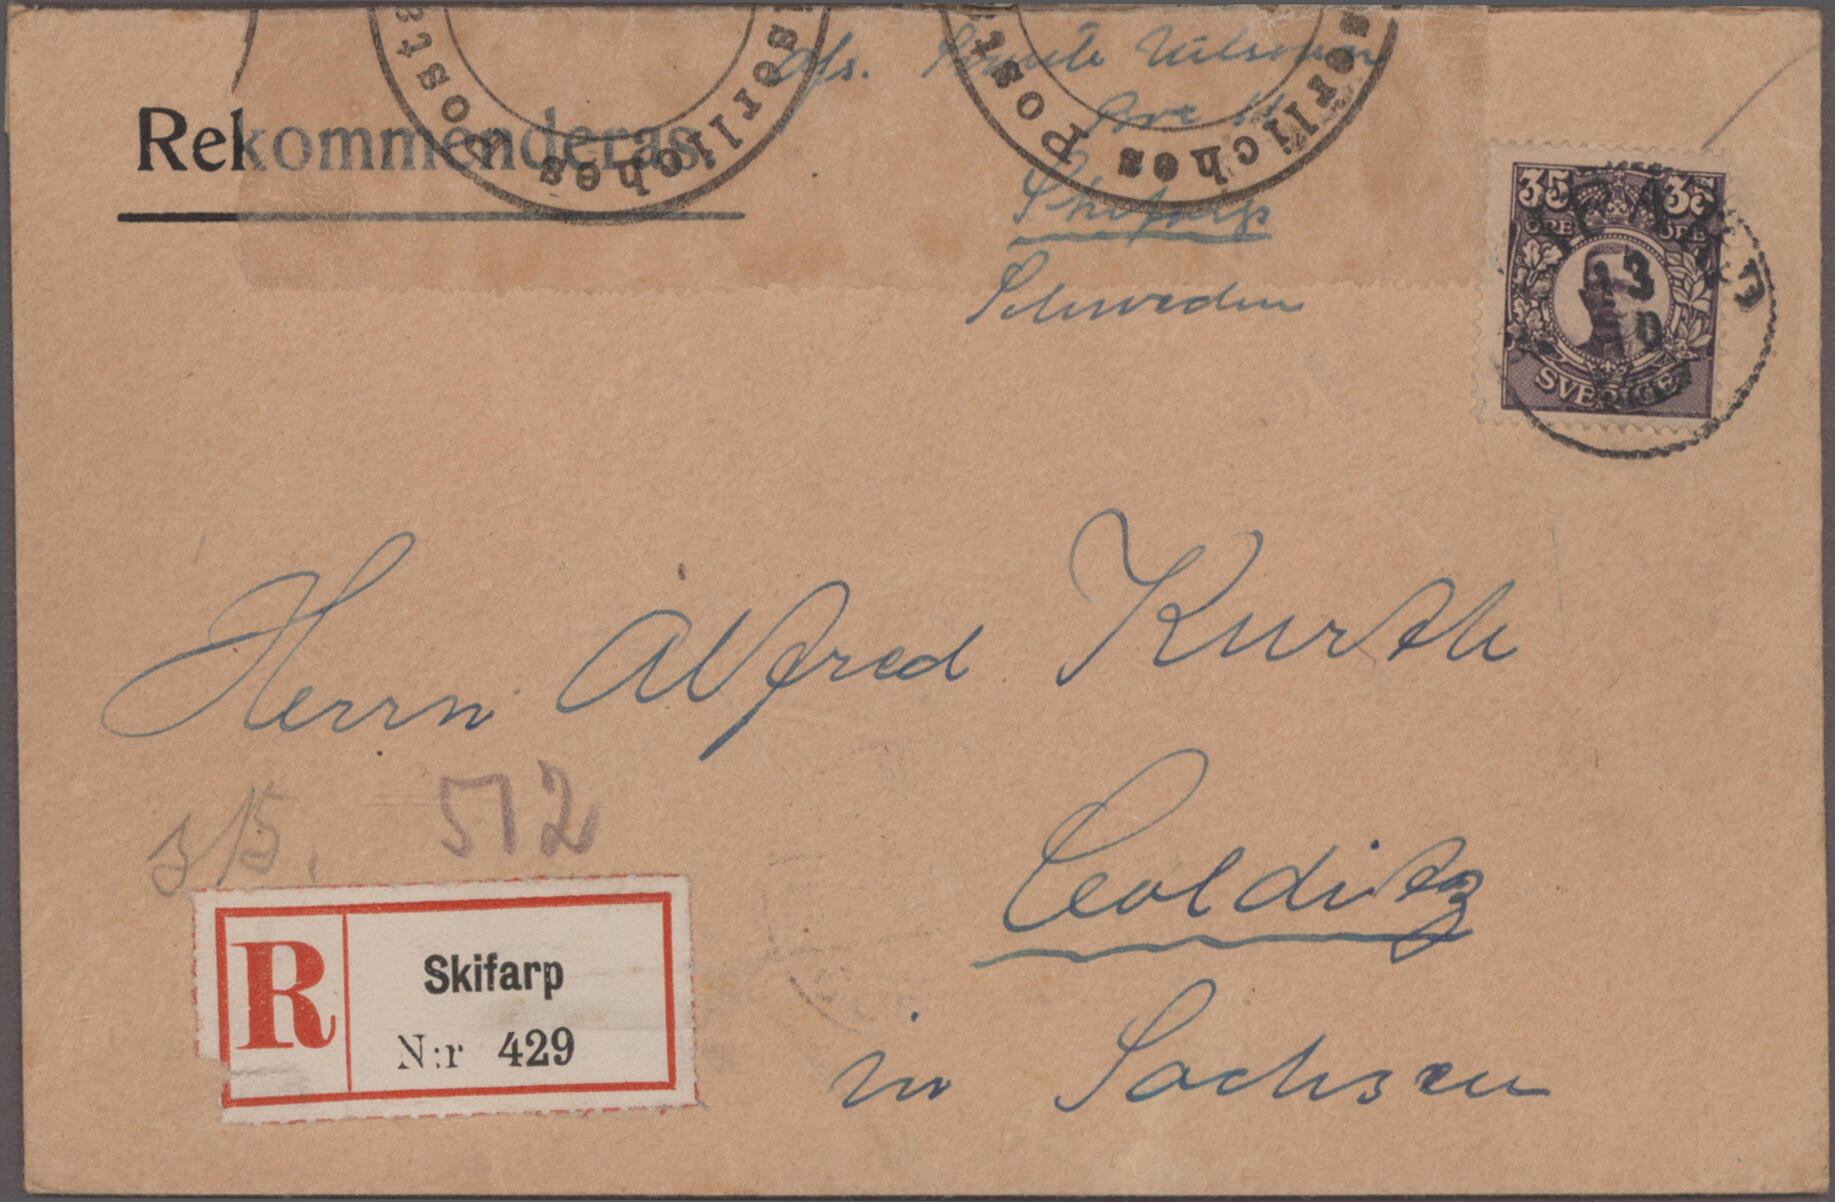 Rekommenderas.
serliches Post
serliches Post
Afs.
Skifarp
Schweden
35 35
ÖRE ÖRE
SVERIGE
13
10
Herrn Alfred Kurth
512
Colditz
in Sachsen
R Skifarp
N:r 429